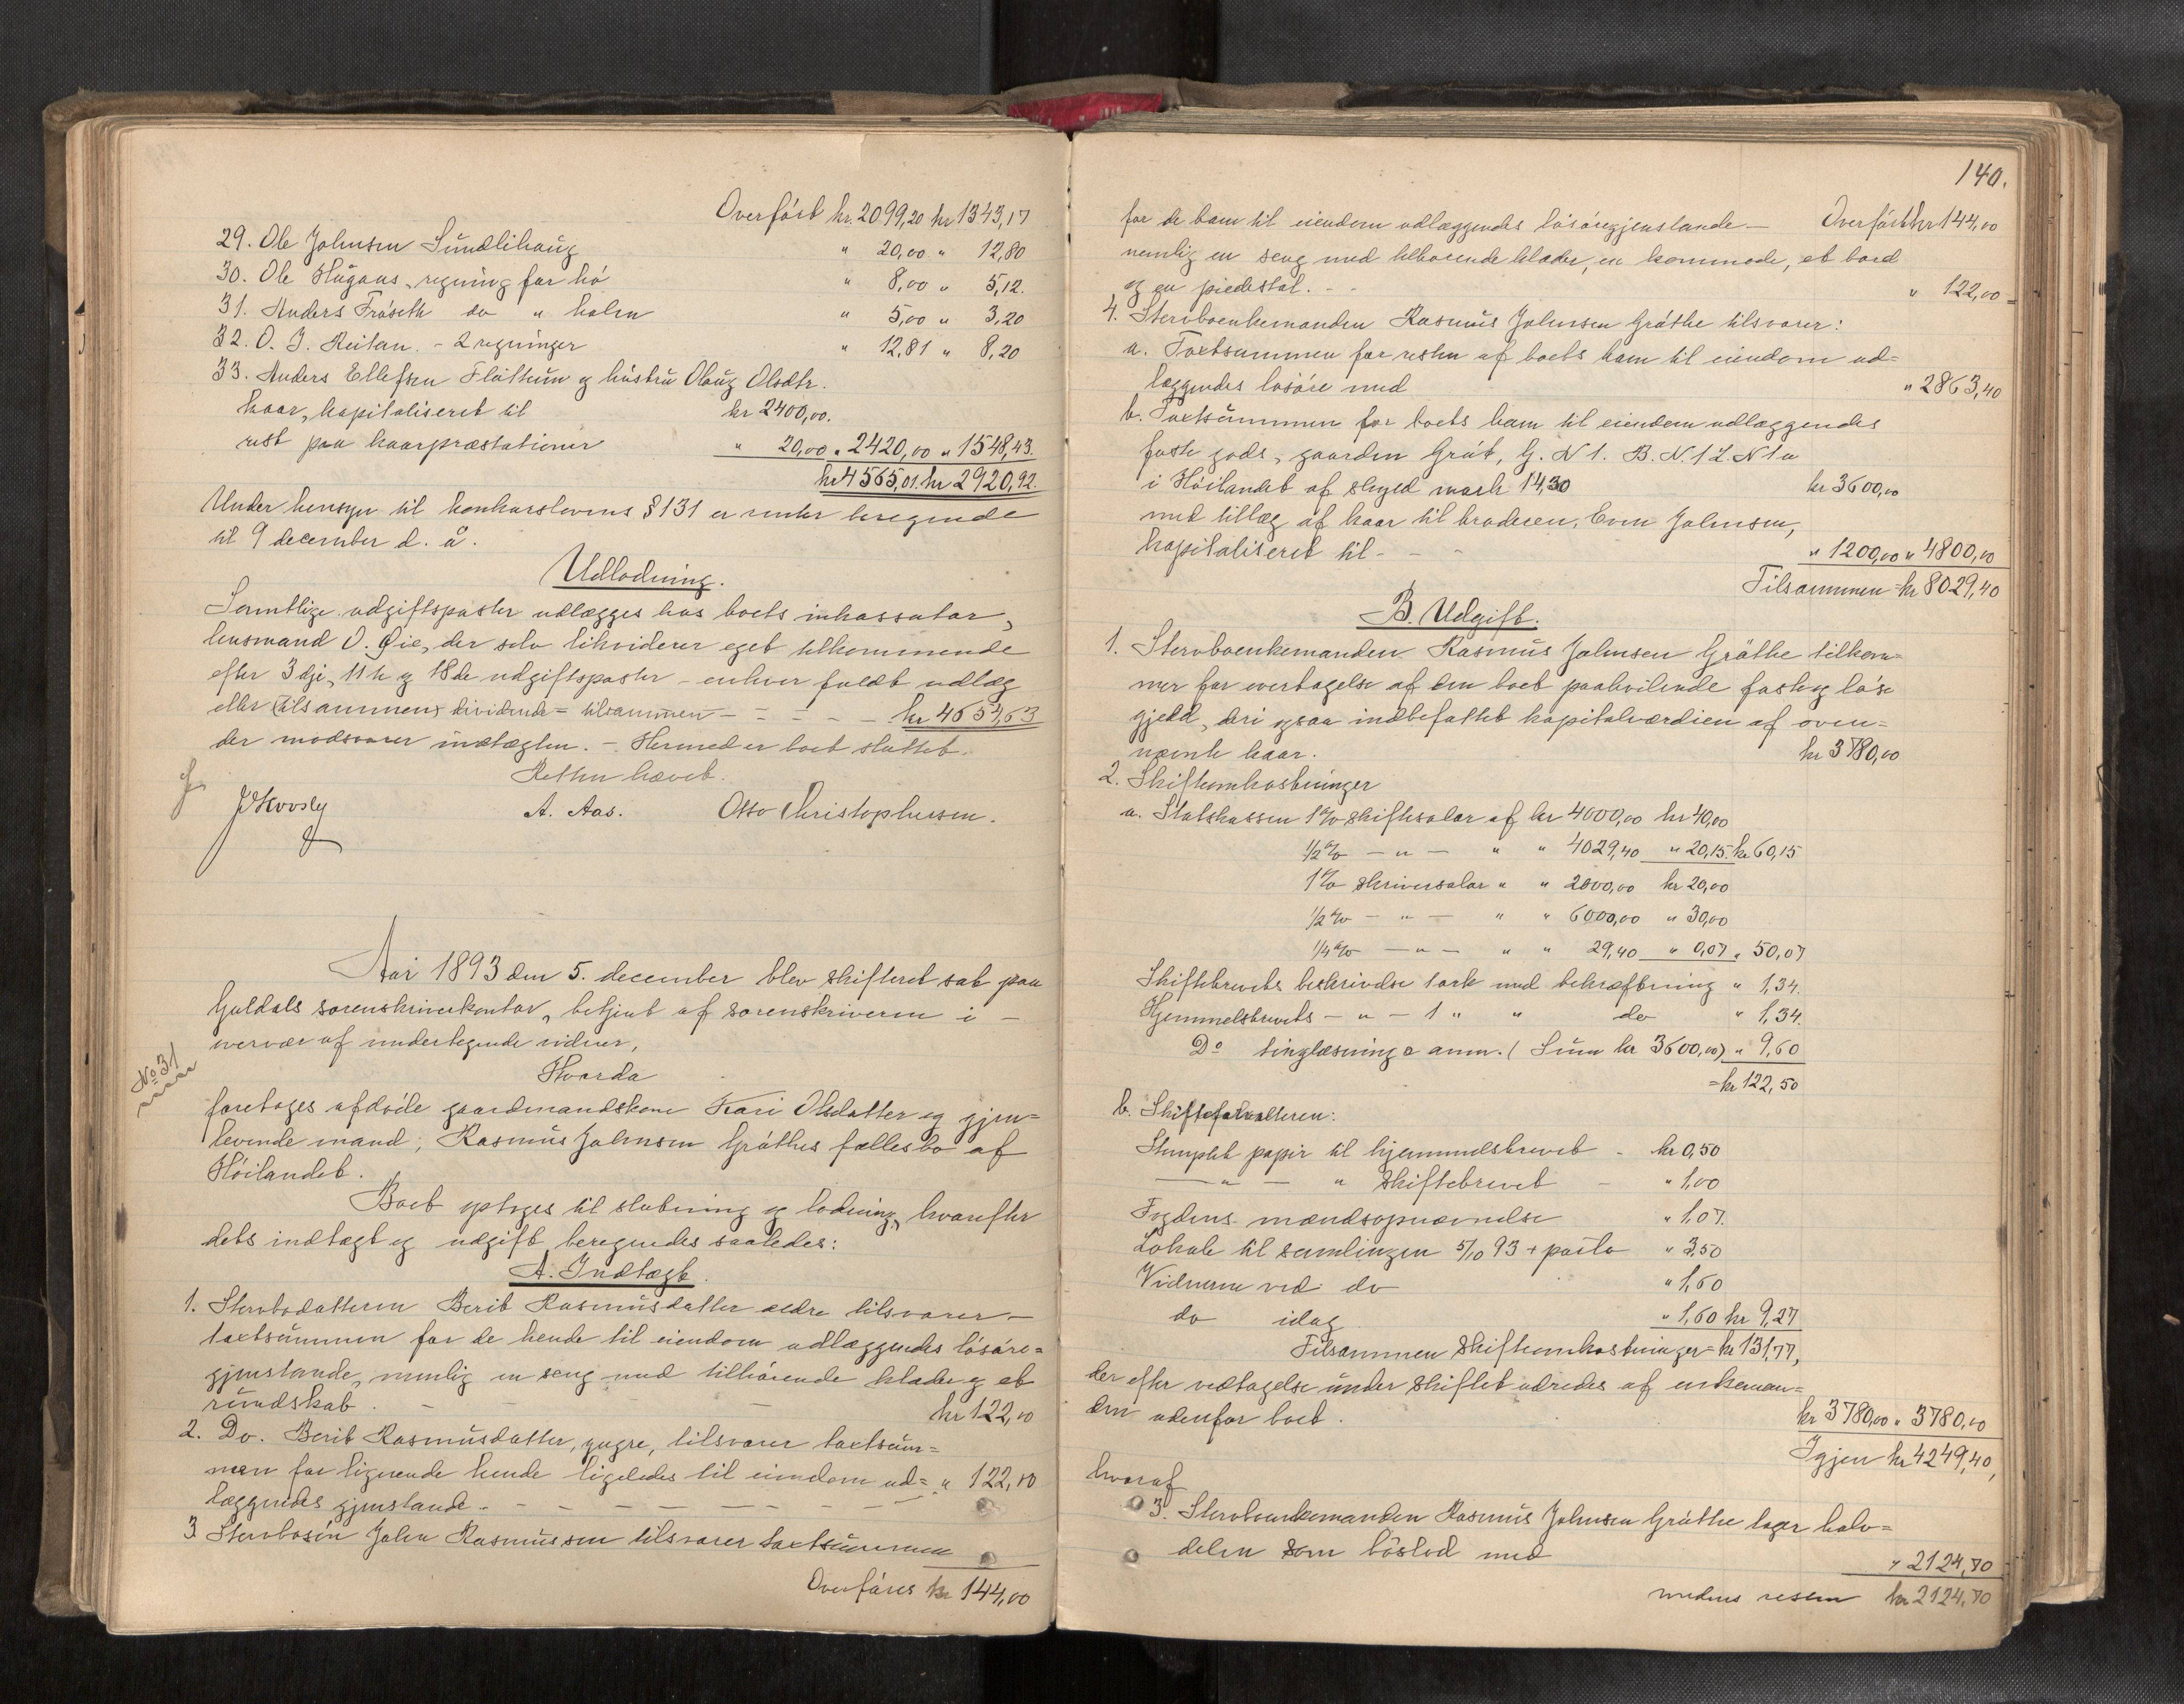 Overført kr. 2099,20 kr 1343,17
29. Ole Johnsen Sundlihaug " 20,00 " 12,80
30. Ole Hagans, regning for hø " 8,00 " 5,12.
31. Anders Frøseth do " halm " 5,00 " 3,20
32. O. J. Reitan. - 2 regninger " 12,81 " 8,20
33. Anders Ellefsen Flottum og hustru Olaug Olsdtr.
kaar, kapitaliseret til kr 2400,00.
rest paa kaarpræstationer " 20,00 " 2420,00 " 1548,43.
kr 4565,01. kr 2920,92.
Under hensyn til konkurslovens § 131 er renter beregnede
til 9 december d. å.
Udlodning.
Samtlige udgiftsposter udlægges hos boets inkassator,
lensmand O. Øie, der selv likviderer eget tilkommende
efter 3dje, 11te og 18de udgiftsposter - enhver fuldt udlæg
eller (tilsammen) dividende = tilsammen - - - - - kr 4654,63
der modsvarer indtægten. - Hermed er boet sluttet.
Retten hævet.
A. Aas. Otto Christophersen.
Aar 1893 den 5. december blev skifteret sat paa
Guldals sorenskriverkontor, betjent af sorenskriveren i -
overvær af undertegnede vidner,
No 31
Hvorda
foretoges afdøde gaardmandskone Kari Olsdatter og gjen=
levende mand, Rasmus Johnsen Gråthes fællesbo af
Höilandet.
Boet optoges til slutning og lodning, hvorefter
dets indtægt og udgift beregnedes saaledes:
A. Indtægt.
1. Stervbodatteren Berit Rasmusdatter ældre tilsvarer -
taxtsummen for de hende til eiendom udlæggendes løsøre=
gjenstande, nemlig en seng med tilhørende klæder og et
rundskab. - - - kr 122,00
2. Do. Berit Rasmusdatter, yngre, tilsvarer taxtsum=
men for lignende hende ligeledes til eiendom ud= " 122,00
læggendes gjenstande. - - - - - - -
3. Stervbosøn John Rasmussen tilsvarer taxtsummen
Overføres kr 144,00
140.
for de ham til eiendom udlæggendes løsøregjenstande. - Overført kr 144,00
nemlig en seng med tilhørende klæder, en kommode, et bord
og en piedestal. - - " 122,00 =
4. Stervboenkemanden Rasmus Johnsen Gråthe tilsvarer:
a. Taxtsummen for resten af boets ham til eiendom ud=
læggendes løsøre med " 2863,40
b. Taxtsummen for boets ham til eiendom udlæggendes
faste gods, gaarden Gråt, G. N 1. B. N. 1 L. N 1a
i Höilandet af skyld mark 14,30 kr 3600,00
med tillæg af kaar til broderen, Even Johnsen,
kapitaliseret til - - - " 1200,00 " 4800,00
Tilsammen kr 8029,40
B. Udgift.
1. Stervboenkemanden Rasmus Johnsen Gråthe tilkom=
mer for overtagelse af den boet paahvilende faste og løse
gjeld, deri ogsaa indbefattet kapitalværdien af oven=
nævnte kaar. kr 3780,00
2. Skifteomkostninger
a. Statskassen 1 % skiftesalær af kr 4000,00 kr 40,00
1/2 % - " - " " 4029,40 " 20,15. kr 60,15
1 % skriversalær " " 2000,00 kr 20,00
1/2 % - " - " " 6000,00 " 30,00
1/4 % - " - " " 29,40 " 0,07 " 50,07
Skiftebrevets beskrivelse 1 ark med bekræftning " 1,34.
Hjemmelsbrevets - " - 1 " " do " 1,34.
Do tinglæsning & anm. (Sum kr 3600,00) " 9,60
= kr 122,50
b. Skifteforvalteren:
Stemplet papir til hjemmelsbrevet - kr 0,50
- " - " skiftebrevet - " 1,00
Fogdens mændsopnævnelse " 1,07.
Lokale til samlingen 5/10 93 + porto " 3,50
Vidnerne ved do " 1,60
do idag " 1,60 kr 9,27
Tilsammen skifteomkostninger = kr 131,77,
der efter vedtagelse under skiftet udredes af enkeman=
den udenfor boet. kr 3780,00 " 3780,00
Igjen kr 4249,40,
hvoraf
3. Stervboenkemanden Rasmus Johnsen Gråthe tager halv=
delen som bøslod med " 2124,70
medens resten kr 2124,70